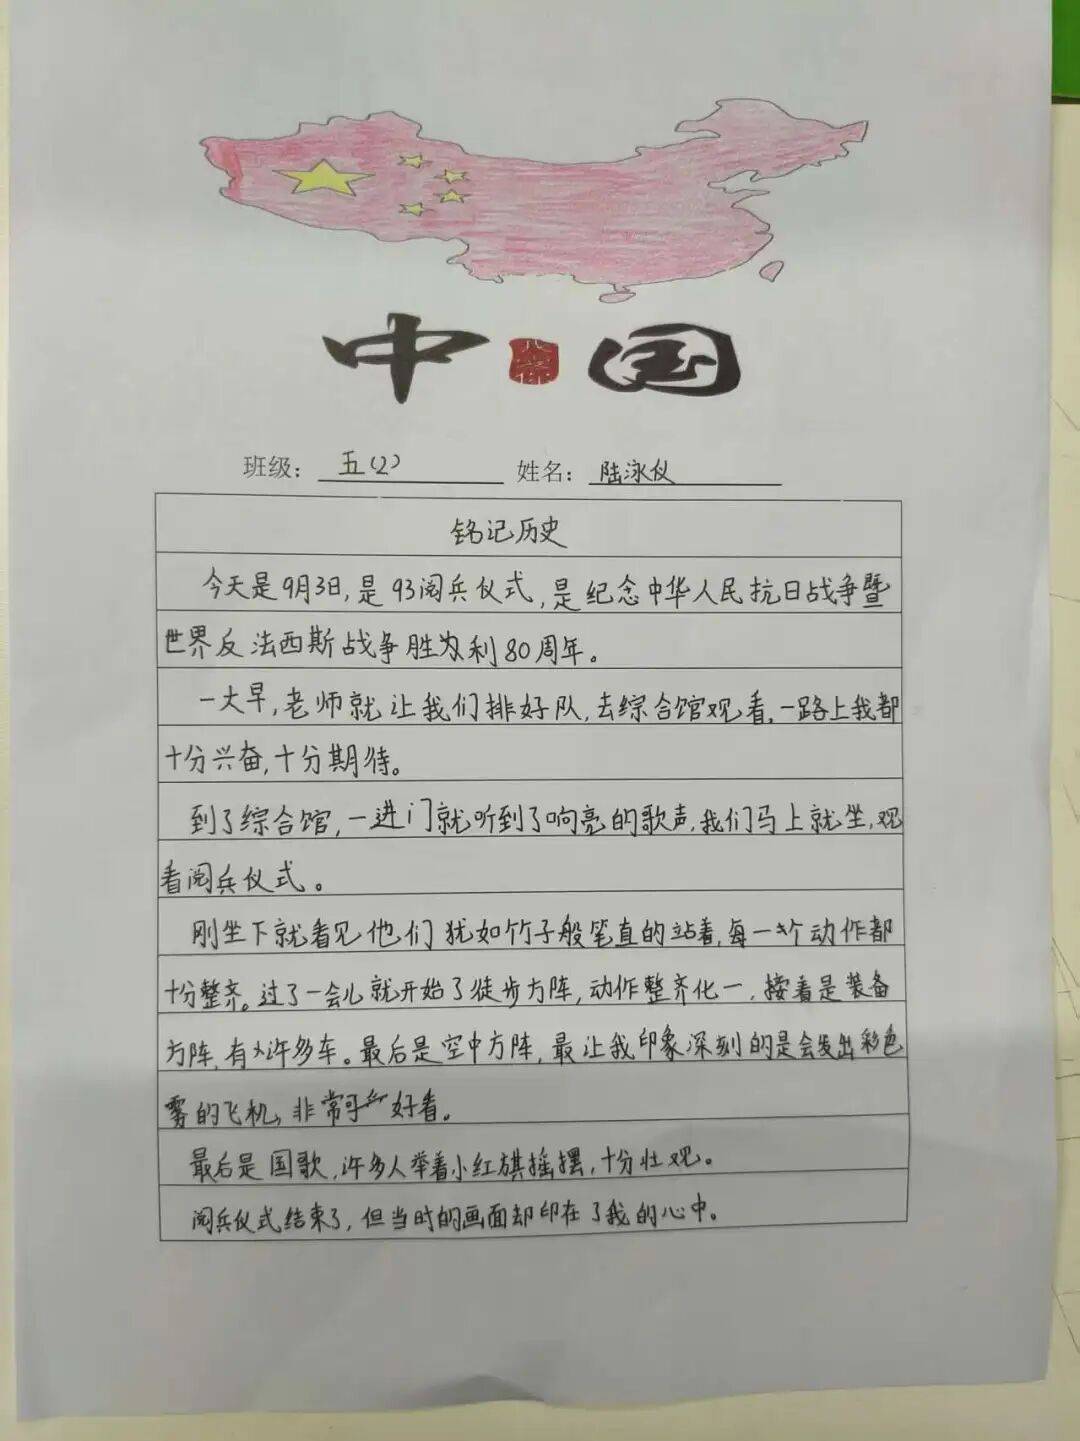 中国
班级：五(2) 姓名：陆泳仪
铭记历史
今天是9月3日，是93阅兵仪式，是纪念中华人民抗日战争暨
世界反法西斯战争胜利80周年。
一大早，老师就让我们排好队，去综合馆观看，一路上我都
十分兴奋，十分期待。
到了综合馆，一进门就听到了响亮的歌声，我们马上就坐，观
看阅兵仪式。
刚坐下就看见他们犹如竹子般笔直的站着，每一个动作都
十分整齐。过了一会儿就开始了徒步方阵，动作整齐化一，接着是装备
方阵，有许多车。最后是空中方阵，最让我印象深刻的是会发出彩色
雾的飞机，非常好看。
最后是国歌，许多人举着小红旗摇摆，十分壮观。
阅兵仪式结束了，但当时的画面却印在了我的心中。